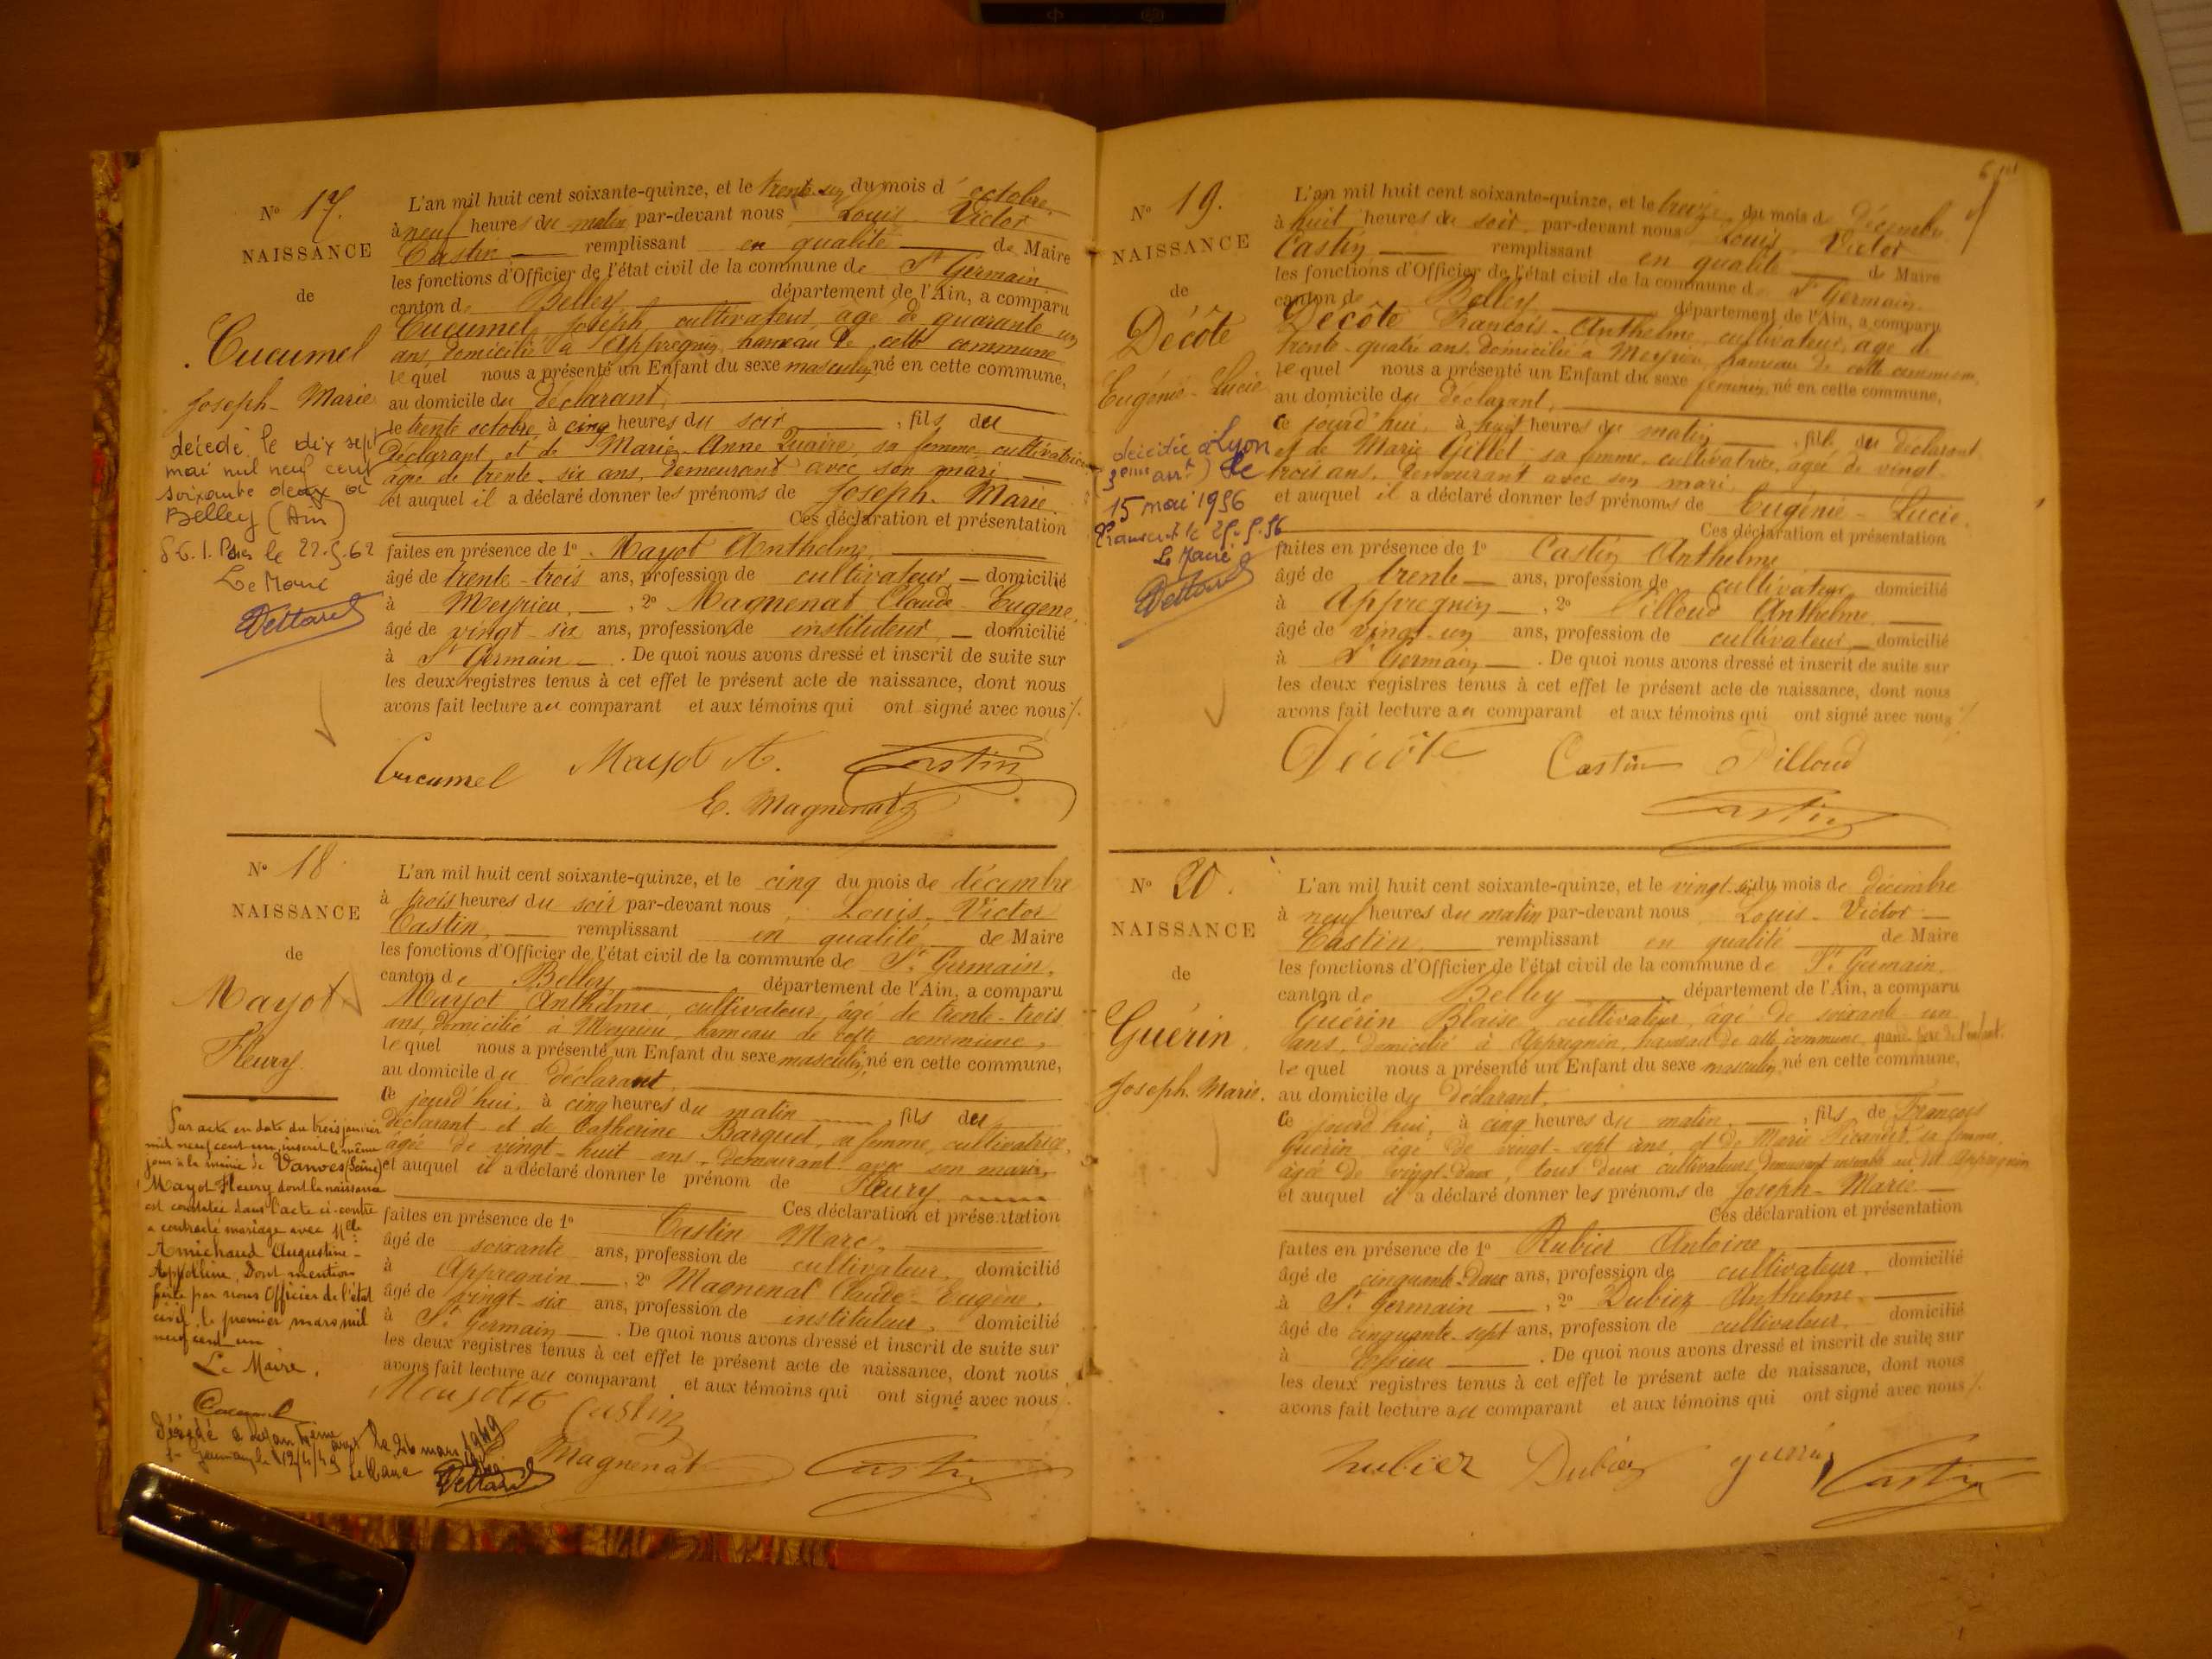 N° 17.
NAISSANCE
de
Cucumel
Joseph-Marie
décédé le dix sept
mai mil neuf cent
soixante deux à
Belley (Ain)
le 22.5.62
Le Maire
L'an mil huit cent soixante-quinze, et le trente-un du mois d'octobre,
à neuf heures du matin par-devant nous Louis-Victor
Castin remplissant en qualité de Maire
les fonctions d'Officier de l'état civil de la commune de St Germain
canton de Belley département de l'Ain, a comparu
Cucumel Joseph, cultivateur, âgé de quarante-un
ans, domicilié à Appregnin, hameau de cette commune
lequel nous a présenté un Enfant du sexe masculin, né en cette commune,
au domicile du déclarant,
le trente octobre, à cinq heures du soir, fils du
déclarant et de Marie-Anne sa femme, cultivatrice
âgée de trente-six ans, demeurant avec son mari
et auquel il a déclaré donner les prénoms de Joseph-Marie.
Ces déclaration et présentation
faites en présence de 1° Mayot Anthelme,
âgé de trente-trois ans, profession de cultivateur domicilié
à Meyrieu, 2° Magnenat Claude-Eugène,
âgé de vingt-six ans, profession de instituteur, domicilié
à St Germain. De quoi nous avons dressé et inscrit de suite sur
les deux registres tenus à cet effet le présent acte de naissance, dont nous
avons fait lecture au comparant et aux témoins qui ont signé avec nous
Cucumel Mayot A. Castin
E. Magnenat
N° 18
NAISSANCE
de
Mayot
Fleury.
Par acte en date du trois janvier
mil neuf cent un, inscrit le même
jour à la mairie de Vanves (Seine)
Mayot Fleury dont la naissance
est constatée dans l'acte ci-contre
a contracté mariage avec Mlle
Amichaud Augustine-
Appolline, Dont mention
faite par nous Officier de l'état
civil, le premier mars mil
neuf cent un
Le Maire,
Cucumel
Décédé à Lyon le 26 mars 1949
St Germain, le 12/4/49 Le Maire
L'an mil huit cent soixante-quinze, et le cinq du mois de décembre
à trois heures du soir par-devant nous Louis-Victor
Castin, remplissant en qualité de Maire
les fonctions d'Officier de l'état civil de la commune de St Germain,
canton de Belley département de l'Ain, a comparu
Mayot Anthelme, cultivateur, âgé de trente-trois
ans, domicilié à Meyrieu, hameau de cette commune,
lequel nous a présenté un Enfant du sexe masculin, né en cette commune,
au domicile du déclarant,
ce jourd'hui, à cinq heures du matin, fils du
déclarant et de Catherine Barquet, sa femme, cultivatrice,
âgée de vingt-huit ans, demeurant avec son mari,
et auquel il a déclaré donner le prénom de Fleury
Ces déclaration et présentation
faites en présence de 1° Castin Marc,
âgé de soixante ans, profession de cultivateur, domicilié
à Appregnin, 2° Magnenat Claude-Eugène,
âgé de vingt-six ans, profession de instituteur, domicilié
à St Germain. De quoi nous avons dressé et inscrit de suite sur
les deux registres tenus à cet effet le présent acte de naissance, dont nous
avons fait lecture au comparant et aux témoins qui ont signé avec nous.
Mayot A Castin
Magnenat Castin
N° 19.
NAISSANCE
de
Décôte
Eugénie-Lucie
décédée à Lyon
(3eme art) le
15 mai 1956
Transcrit le 25.5.56
Le Maire
L'an mil huit cent soixante-quinze, et le treize du mois de décembre
à huit heures du soir par-devant nous Louis-Victor
Castin remplissant en qualité de Maire
les fonctions d'Officier de l'état civil de la commune de St Germain
canton de Belley, département de l'Ain, a comparu
Décôte François-Anthelme, cultivateur, âgé de
trente-quatre ans, domicilié à Meyrieu, hameau de cette commune,
lequel nous a présenté un Enfant du sexe féminin, né en cette commune,
au domicile du déclarant,
ce jourd'hui, à huit heures du matin, fille du déclarant
et de Marie Gillet sa femme, cultivatrice, âgée de vingt-
trois ans, demeurant avec son mari
et auquel il a déclaré donner les prénoms de Eugénie-Lucie.
Ces déclaration et présentation
faites en présence de 1° Castin Anthelme
âgé de trente ans, profession de cultivateur domicilié
à Appregnin, 2° Pilloud Anthelme,
âgé de vingt-un ans, profession de cultivateur, domicilié
à St Germain. De quoi nous avons dressé et inscrit de suite sur
les deux registres tenus à cet effet le présent acte de naissance, dont nous
avons fait lecture au comparant et aux témoins qui ont signé avec nous
Décôte Castin Pilloud
Castin
N° 20.
NAISSANCE
de
Guérin
Joseph-Marie.
L'an mil huit cent soixante-quinze, et le vingt-six du mois de décembre
à neuf heures du matin par-devant nous Louis-Victor
Castin remplissant en qualité de Maire
les fonctions d'Officier de l'état civil de la commune de St Germain.
canton de Belley département de l'Ain, a comparu
Guérin Blaise cultivateur, âgé de soixante-un
ans, domicilié à Appregnin, hameau de cette commune, grand-père de l'enfant.
lequel nous a présenté un Enfant du sexe masculin, né en cette commune,
au domicile du déclarant.
ce jourd'hui, à cinq heures du matin, fils de François
Guérin âgé de vingt-sept ans, et de Marie sa femme,
âgée de vingt-deux, tous deux cultivateurs, demeurant Appregnin
et auquel il a déclaré donner les prénoms de Joseph-Marie
Ces déclaration et présentation
faites en présence de 1° Rubier Antoine
âgé de cinquante-deux ans, profession de cultivateur, domicilié
à St Germain, 2° Dubiez Anthelme.
âgé de cinquante-sept ans, profession de cultivateur, domicilié
à. De quoi nous avons dressé et inscrit de suite sur
les deux registres tenus à cet effet le présent acte de naissance, dont nous
avons fait lecture au comparant et aux témoins qui ont signé avec nous
rubier Dubiez guérin Castin